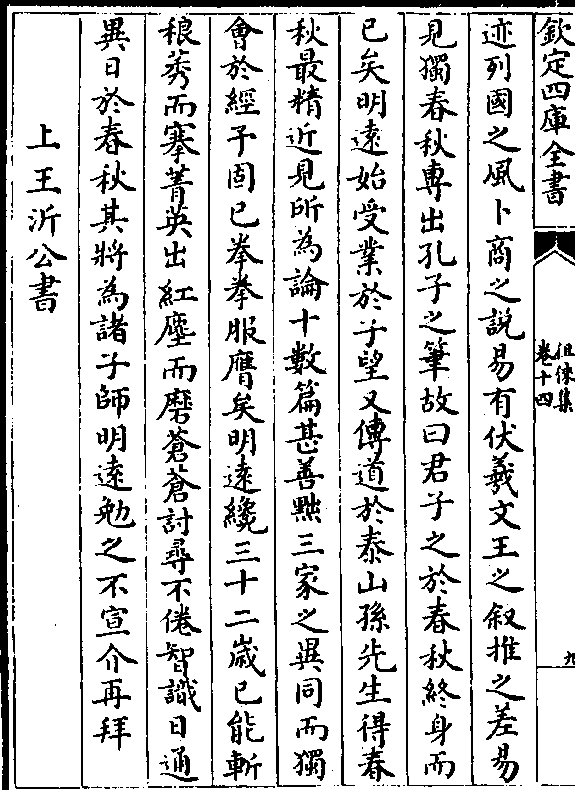 欽定四庫全書
徂徠集
卷十四
九
迹列國之風卜商之說易有伏羲文王之叙推之差易
見獨春秋專出孔子之筆故曰君子之於春秋終身而
已矣明遠始受業於子望又傳道於泰山孫先生得春
秋最精近見所為論十數篇甚善黜三家之異同而獨
會於經予固已拳拳服膺矣明遠纔三十二歲已能斬
稂莠而搴菁英出紅塵而磨蒼蒼討尋不倦智識日通
異日於春秋其將為諸子師明遠勉之不宣介再拜
上王沂公書